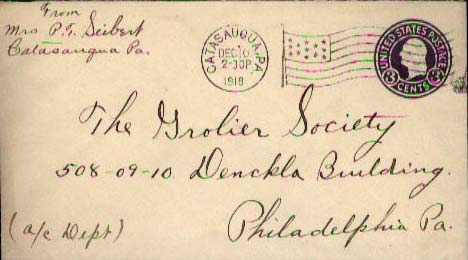 From
Mrs P.F. Seibert
Catasauqua Pa.
CATASAUQUA, PA.
DEC 10
2-30P
1918
UNITED STATES POSTAGE
3 CENTS 3
The Grolier Society
508-09-10. Denckla Building.
Philadelphia Pa.
(a/c Dept)